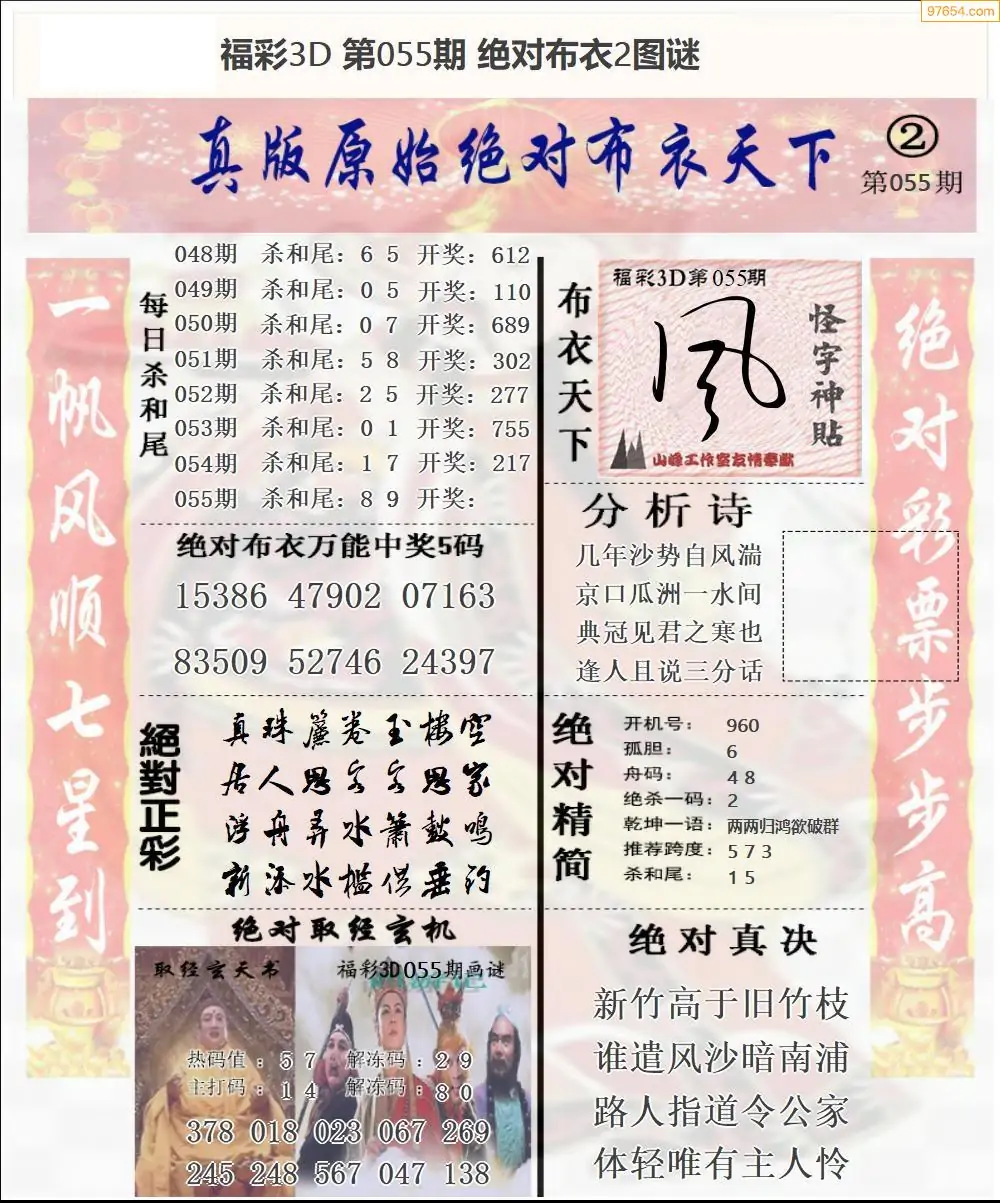 97654.com
福彩3D 第055期 绝对布衣2图谜
真版原始绝对布衣天下
②
第055期
一帆风顺七星到
每日杀和尾
048期 杀和尾：6 5 开奖：612
049期 杀和尾：0 5 开奖：110
050期 杀和尾：0 7 开奖：689
051期 杀和尾：5 8 开奖：302
052期 杀和尾：2 5 开奖：277
053期 杀和尾：0 1 开奖：755
054期 杀和尾：1 7 开奖：217
055期 杀和尾：8 9 开奖：
绝对布衣万能中奖5码
15386 47902 07163
83509 52746 24397
絕對正彩
真珠簾卷玉楼空
居人思客客思家
浮舟弄水箫鼓鸣
新添水槛供垂钓
绝对取经玄机
取经玄天书
福彩3D055期画谜
热码值：5 7 解冻码：2 9
主打码：1 4 解冻码：8 0
378 018 023 067 269
245 248 567 047 138
布衣天下
福彩3D第055期
风
怪字神貼
山峰工作室友情奉献
分析诗
几年沙势自风湍
京口瓜洲一水间
典冠见君之寒也
逢人且说三分话
绝对精简
开机号：960
孤胆：6
舟码：4 8
绝杀一码：2
乾坤一语：两两归鸿欲破群
推荐跨度：5 7 3
杀和尾：1 5
绝对真决
新竹高于旧竹枝
谁遣风沙暗南浦
路人指道令公家
体轻唯有主人怜
绝对彩票步步高